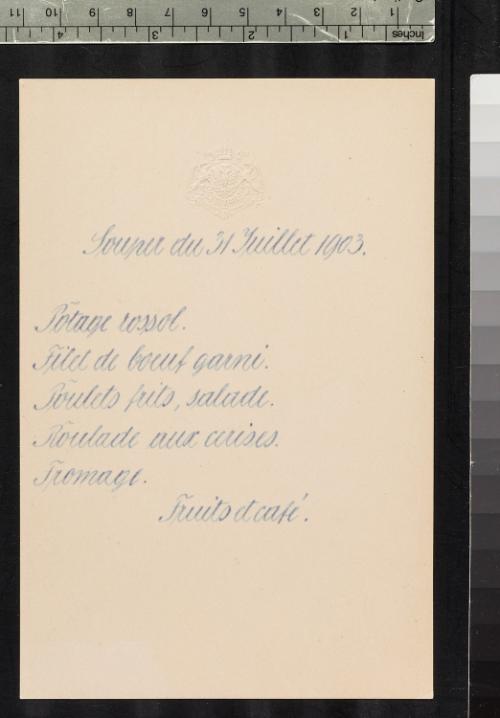 Souper du 31 Juillet 1903.
Potage rossol.
Filet de boeuf garni.
Poulets frits, salade.
Roulade aux cerises.
Fromage.
Fruits et café.
11 10 9 8 7 6 5 4 3 2 1
4 3 2 1 inches